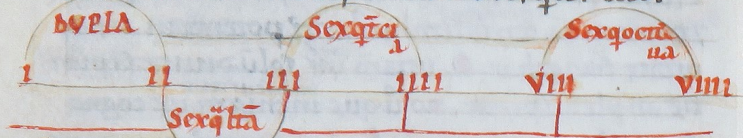 DVPLA
Sexq̄tci
a
Sexqocta
ua
I II III IIII VIII VIIII
Sexq̄lta